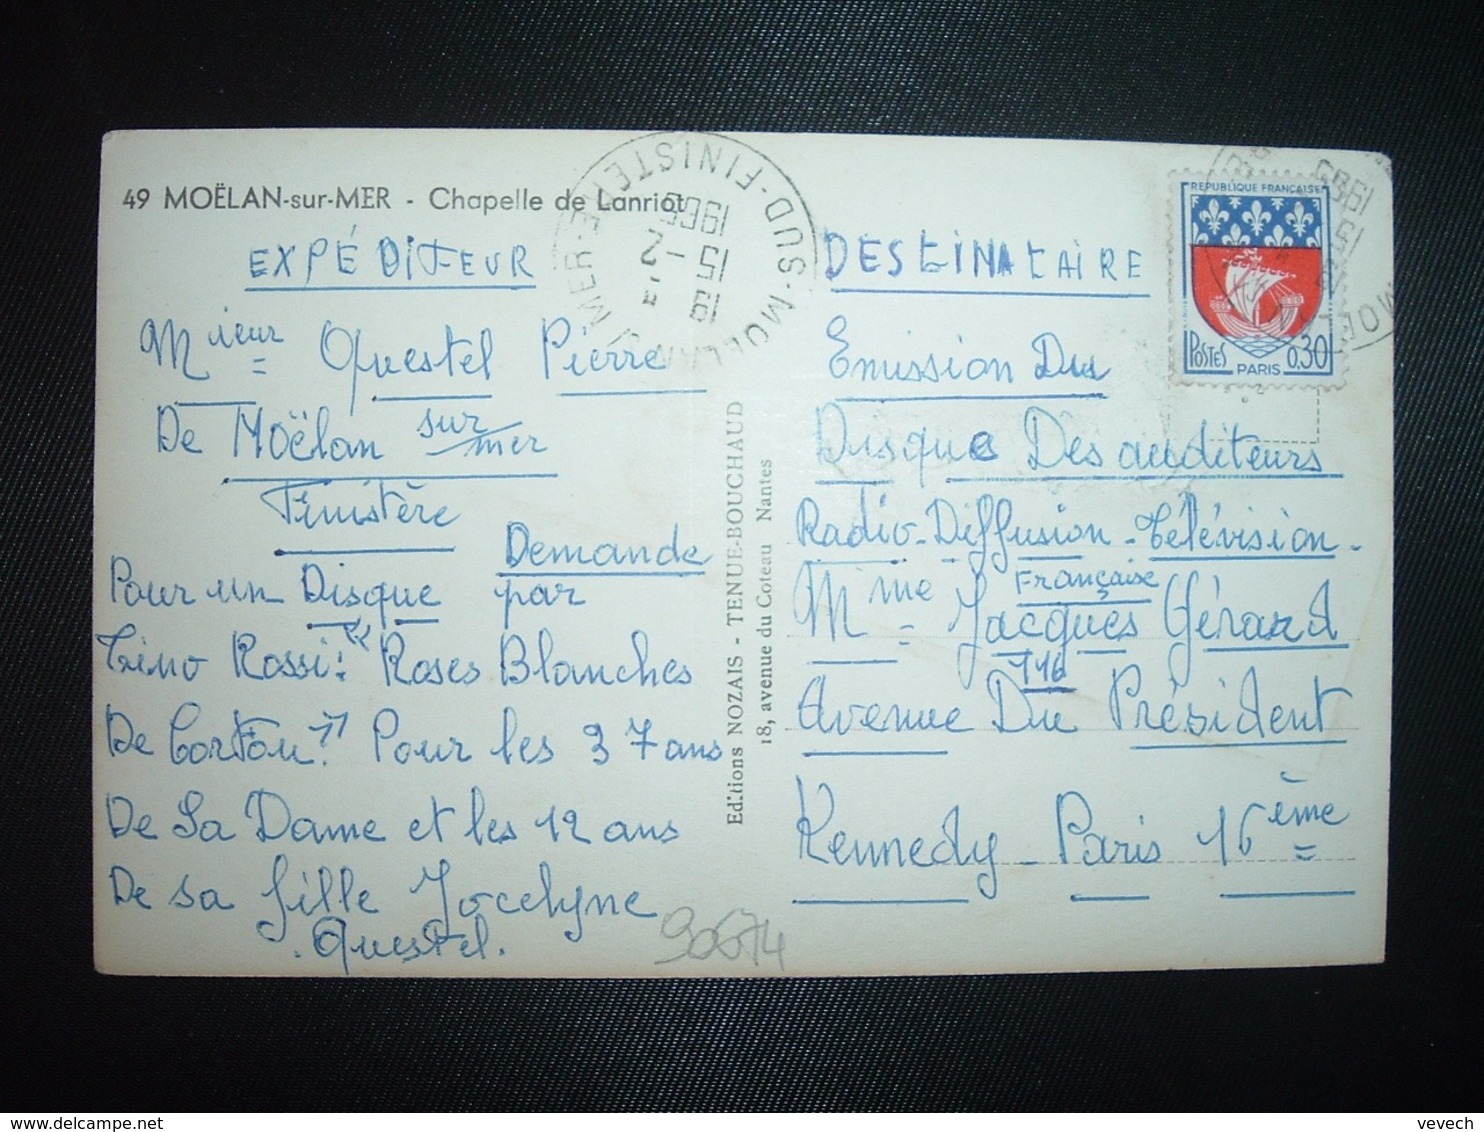 49 MOËLAN-sur-MER - Chapelle de Lanriot
EXPÉDITEUR
Mieur Questel Pierre
De Moëlan sur mer
Finistère
Demande
Pour un Disque par
Tino Rossi: "Roses Blanches
De Corfou" Pour les 37 ans
De Sa Dame et les 12 ans
De sa fille Jocelyne
Questel.
90674
Editions NOZAIS - TENUE-BOUCHAUD
18, avenue du Coteau Nantes
MOELAN S/MER-FINISTERE-SUD
18 H
15 - 2
1966
DESTINATAIRE
Emission Du
Disque Des auditeurs
Radio-Diffusion-Télévision-
Française
Mme Jacques Gérard
116
Avenue Du Président
Kennedy - Paris 16ème
REPUBLIQUE FRANÇAISE
POSTES 0,30
PARIS
vevech